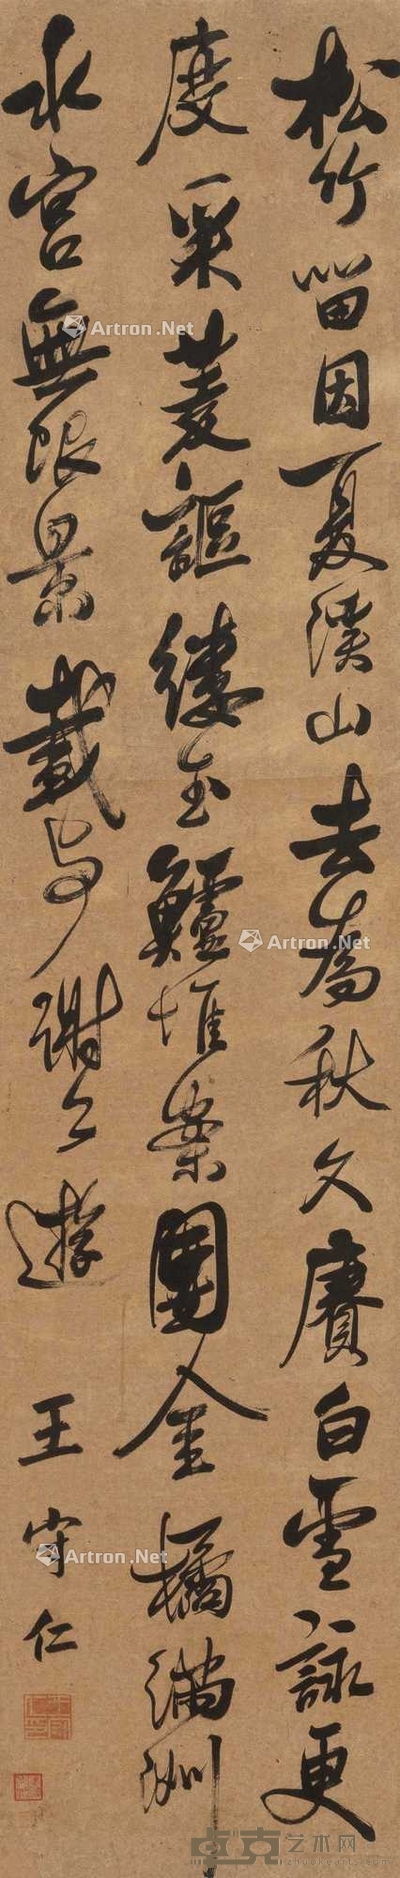 松竹留因夏溪山去為秋久賡白雪詠更
度采菱謳縷玉鱸堆案團金橘滿洲
水宮無限景載與謝公遊
王守仁
Artron.Net
Artron.Net
Artron.Net
Artron.Net
卓克艺术网